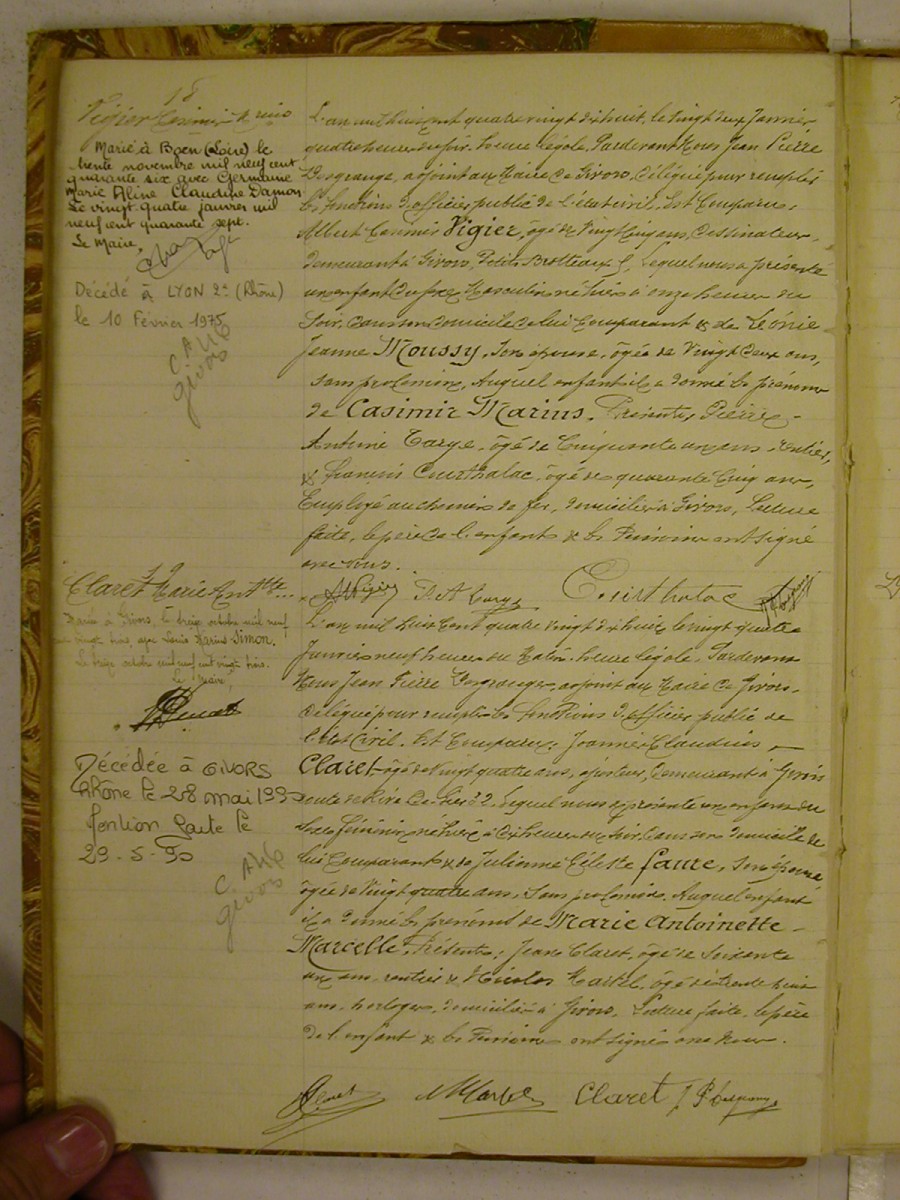 18
Vigier Casimir Marius
Marié à Boën (Loire) le
trente novembre mil neuf cent
quarante six avec Germaine
Marie Aline Claudine Damon
Le vingt quatre janvier mil
neuf cent quarante sept.
Le Maire,
Décédé à LYON 2e (Rhône)
le 10 Février 1975
Givors
L'an mil huit cent quatre vingt dix huit, le vingt deux Janvier
quatre heures du soir, heure légale, Pardevant Nous Jean Pierre
adjoint au Maire de Givors, délégué pour remplir
les fonctions d'officier public de l'état civil, Est Comparu:
Albert Casimir Vigier, âgé de Vingt ans, Dessinateur,
demeurant à Givors, Petits Brotteaux 5, Lequel nous a présenté
un enfant du sexe Masculin né hier à onze heures du
Soir, dans son domicile de lui Comparant & de Léonie
Jeanne Moussy, Son épouse, âgée de Vingt deux ans,
sans profession, Auquel enfant il a donné les prénoms
de Casimir Marius. Présents, Pierre
Antoine Targe, âgé de Cinquante un ans, rentier,
& François Courthalac, âgé de quarante Cinq ans,
Employé au chemin de fer, domiciliés à Givors, Lecture
faite, le père de l'enfant & les témoins ont signé
avec nous.
A Vigier P A Targe Courthalac
19
Claret Marie Antte
Mariée à Givors, le treize octobre mil neuf
cent vingt trois, avec Louis Marius Simon.
Le treize octobre mil neuf cent vingt trois.
Le Maire,
Décédée à GIVORS
Rhône le 28 mai 199
Mention faite le
29-5-90
Givors
L'an mil huit Cent quatre vingt dix huit le vingt quatre
Janvier neuf heures du Matin, heure légale, Pardevant
Nous Jean Pierre adjoint au Maire de Givors,
délégué pour remplir les fonctions d'officier public de
l'état Civil, Est Comparu: Joannès Claudius
Claret, âgé de vingt quatre ans, ajusteur, demeurant à Givors
route de Rive de Gier 32, Lequel nous a présenté un enfant du
Sexe féminin, né hier à dix heures du soir, dans son domicile de
lui Comparant & de Julienne Céleste Faure, Son épouse
âgée de Vingt quatre ans, Sans profession, Auquel enfant
il a donné les prénoms de Marie Antoinette
Marcelle, Présents: Jean Claret, âgé de Soixante
un ans, rentier & Nicolas Martel, âgé de trente huit
ans, horloger, domiciliés à Givors, Lecture faite, le père
de l'enfant & les témoins ont signé avec nous.
Claret